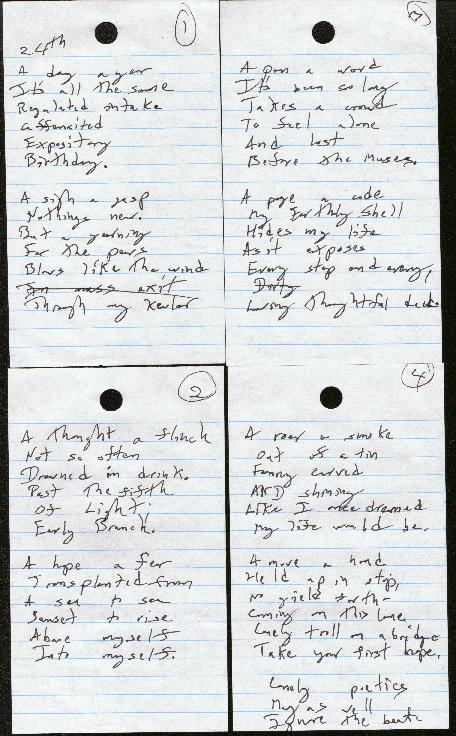 1
24th
A day a year
It's all the same
Regulated intake
Expository
Birthday.
A sigh a gasp
Nothings new.
But a yearning
For the
Blows like the wind
In mass exit
Through my Kevlar
2
A thought a flinch
Not so often
Drowned in drink.
Past the fifth
Of Light;
Early Branch.
A hope a fear
Transplanted from
A sea to sea
Sunset to rise
Above myself
Into myself.
A pen a word
It's been so long
Takes a crowd
To feel alone
And lost
Before the Muses.
A page a code
My earthly shell
Hides my life
As it exposes
Every step and every,
Dirty
Loving thoughtful
4
A roar a smoke
Out of a tin
Funny curved
AND shining
Like I once dreamed
My life would be.
A move a hand
Held up in stop,
No yield
Coming on this lane
Lonely troll on a bridge
Take your first
Lonely poetics
May as well
Ignore the beat